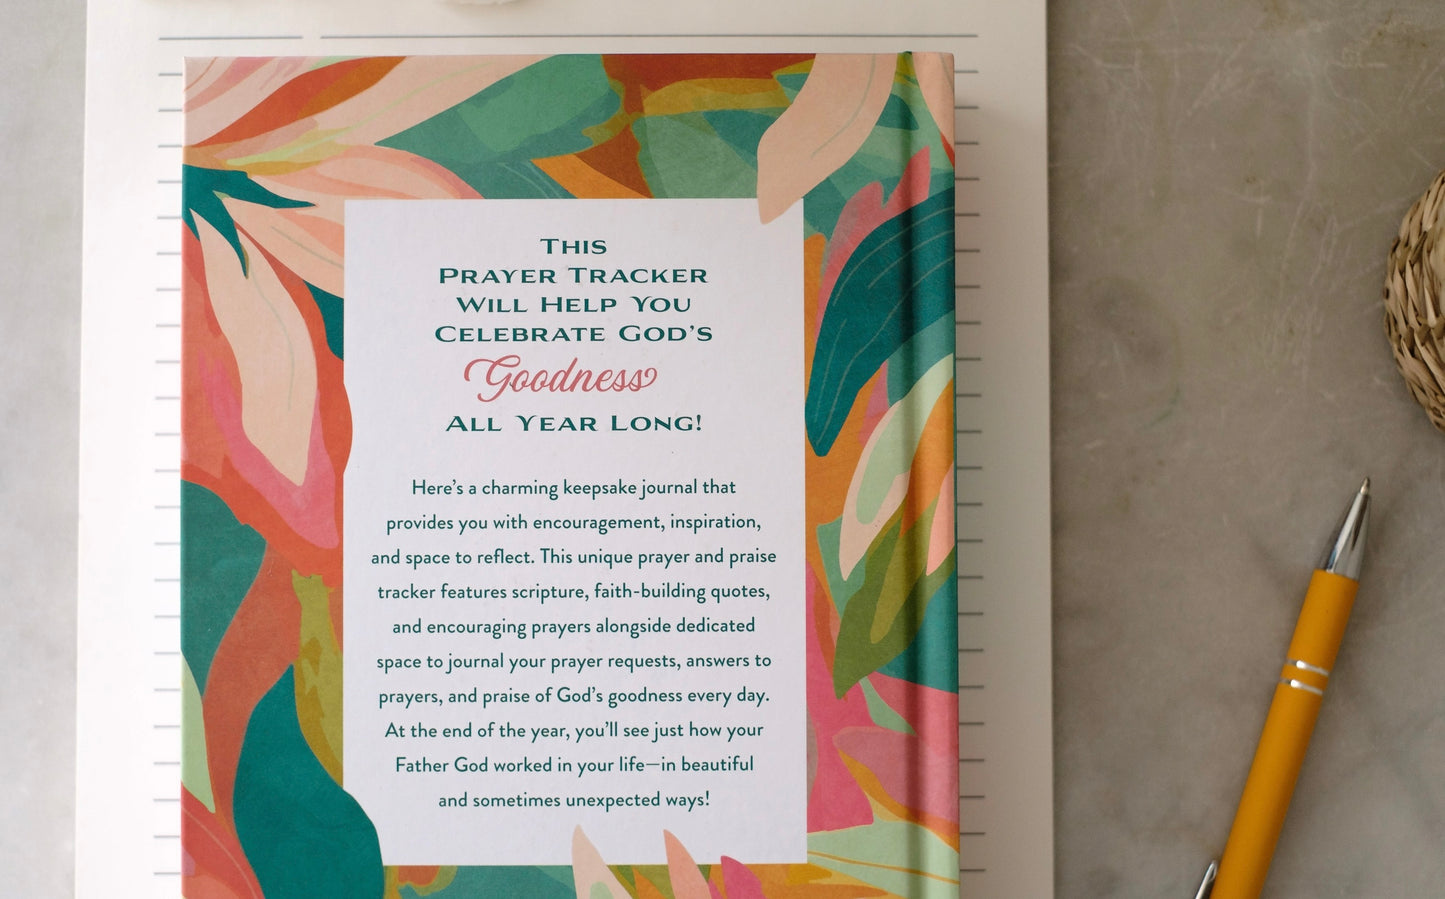 This
Prayer Tracker
Will Help You
Celebrate God's
Goodness
All Year Long!
Here's a charming keepsake journal that
provides you with encouragement, inspiration,
and space to reflect. This unique prayer and praise
tracker features scripture, faith-building quotes,
and encouraging prayers alongside dedicated
space to journal your prayer requests, answers to
prayers, and praise of God's goodness every day.
At the end of the year, you'll see just how your
Father God worked in your life—in beautiful
and sometimes unexpected ways!